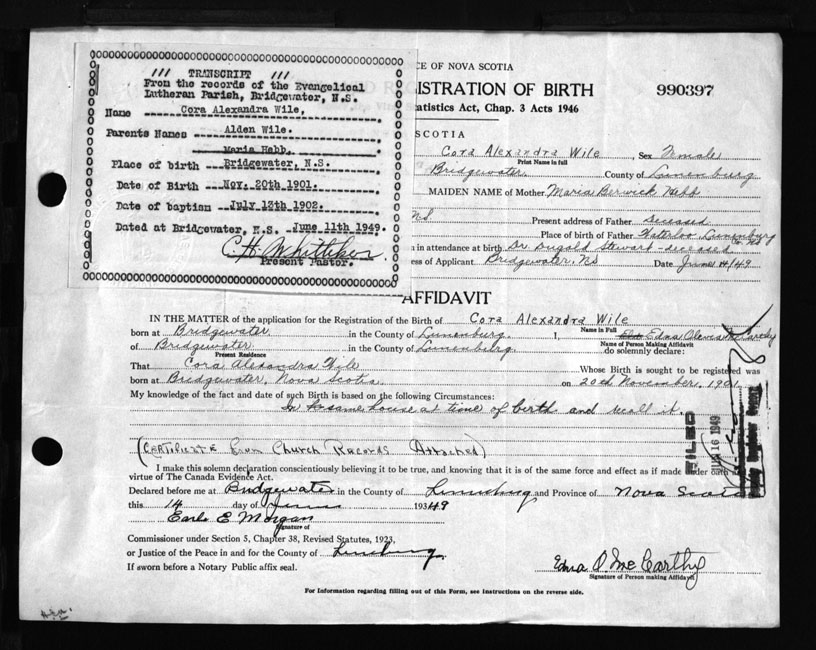 /// TRANSCRIPT ///
From the records of the Evangelical
Lutheran Parish, Bridgewater, N.S.
Name Cora Alexandra Wile,
Parents Names Alden Wile.
Maria Hebb.
Place of birth Bridgewater, N.S.
Date of Birth Nov. 20th 1901.
Date of baptism July 13th 1902.
Dated at Bridgewater, N.S. June 11th 1949.
C. H. Whitteker
Present Pastor.
CE OF NOVA SCOTIA
ISTRATION OF BIRTH 990397
tatistics Act, Chap. 3 Acts 1946
SCOTIA
Cora Alexandra Wile, Sex Female
Print Name in full
Bridgewater County of Lunenburg
MAIDEN NAME of Mother Maria Berwick Hebb
NS Present address of Father Deceased
Place of birth of Father Waterloo, Lunenburg Co.
n in attendance at birth Dr. Dugald Stewart - deceased
ess of Applicant Bridgewater, NS Date June 14/49
AFFIDAVIT
IN THE MATTER of the application for the Registration of the Birth of Cora Alexandra Wile
Name in Full
born at Bridgewater in the County of Lunenburg. I, Edna McCarthy
Name of Person Making Affidavit
of Bridgewater in the County of Lunenburg do solemnly declare:
Present Residence
That Cora Alexandra Wile Whose Birth is sought to be registered was
born at Bridgewater, Nova Scotia on 20th November, 1901
My knowledge of the fact and date of such Birth is Based on the following Circumstances:
In same house at time of birth and recall it.
(Certificate from Church Records Attached)
I make this solemn declaration conscientiously believing it to be true, and knowing that it is of the same force and effect as if made under oath
virtue of The Canada Evidence Act.
Declared before me at Bridgewater in the County of Lunenburg and Province of Nova Scotia
this 14 day of June 1949
Earle E Morgan
Signature of
Commissioner under Section 5, Chapter 38, Revised Statutes, 1923,
or Justice of the Peace in and for the County of Lunenburg
If sworn before a Notary Public affix seal.
Edna O. McCarthy
Signature of Person making Affidavit
For Information regarding filling out of this Form, see instructions on the reverse side.
FILED
16 1949